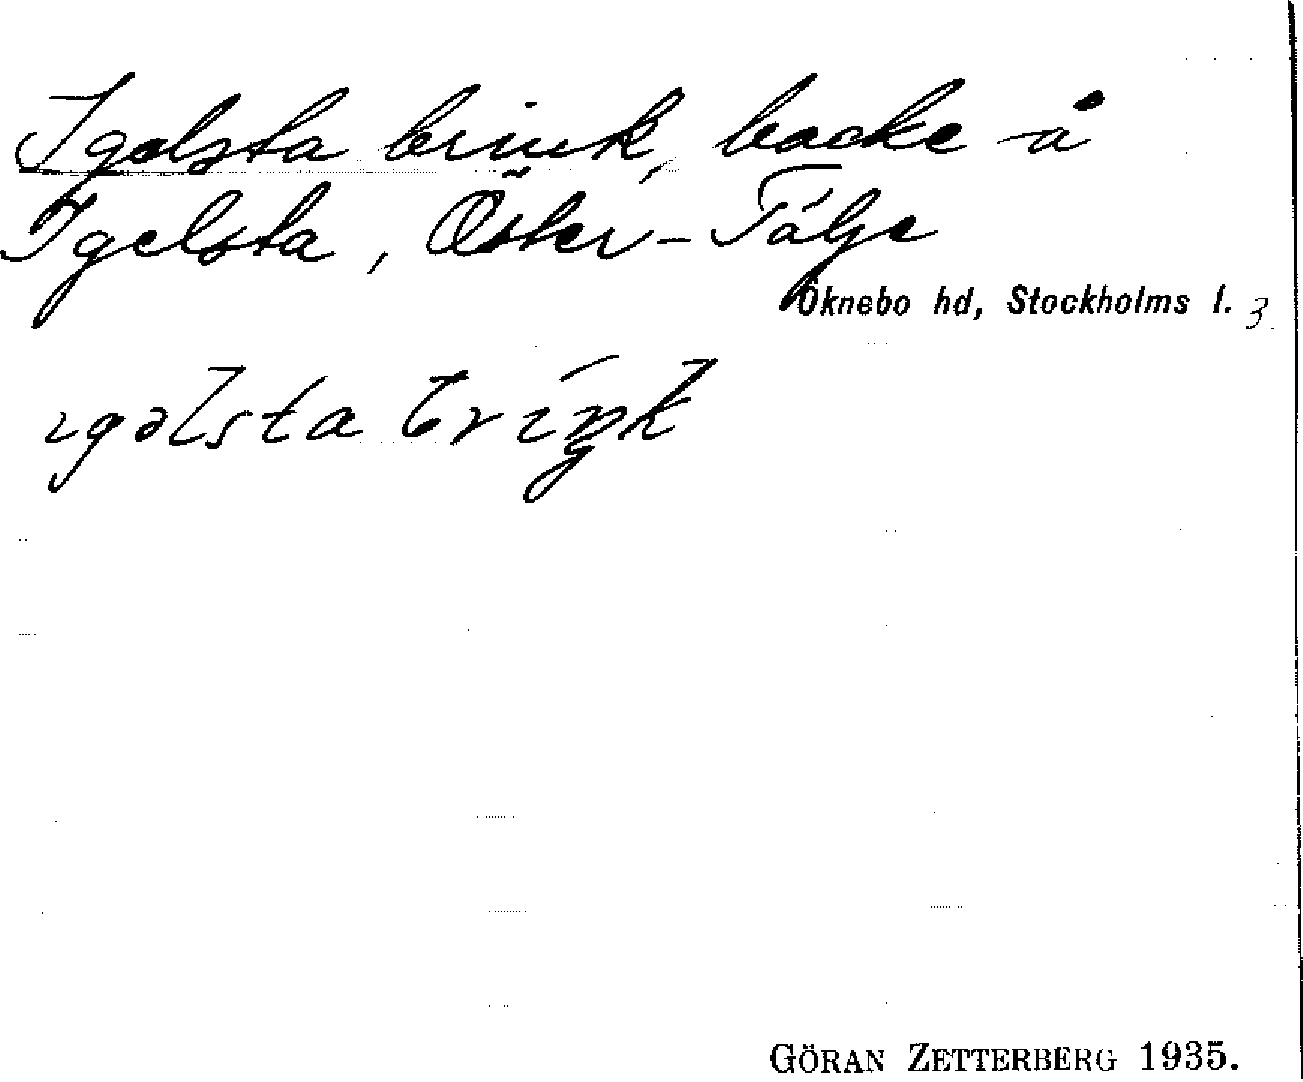 Igelsta brink, backe å
Igelsta, Öster-Tälje
Öknebo hd, Stockholms l. 3
ıgəlsta brıŋ́k
GÖRAN ZETTERBERG 1935.